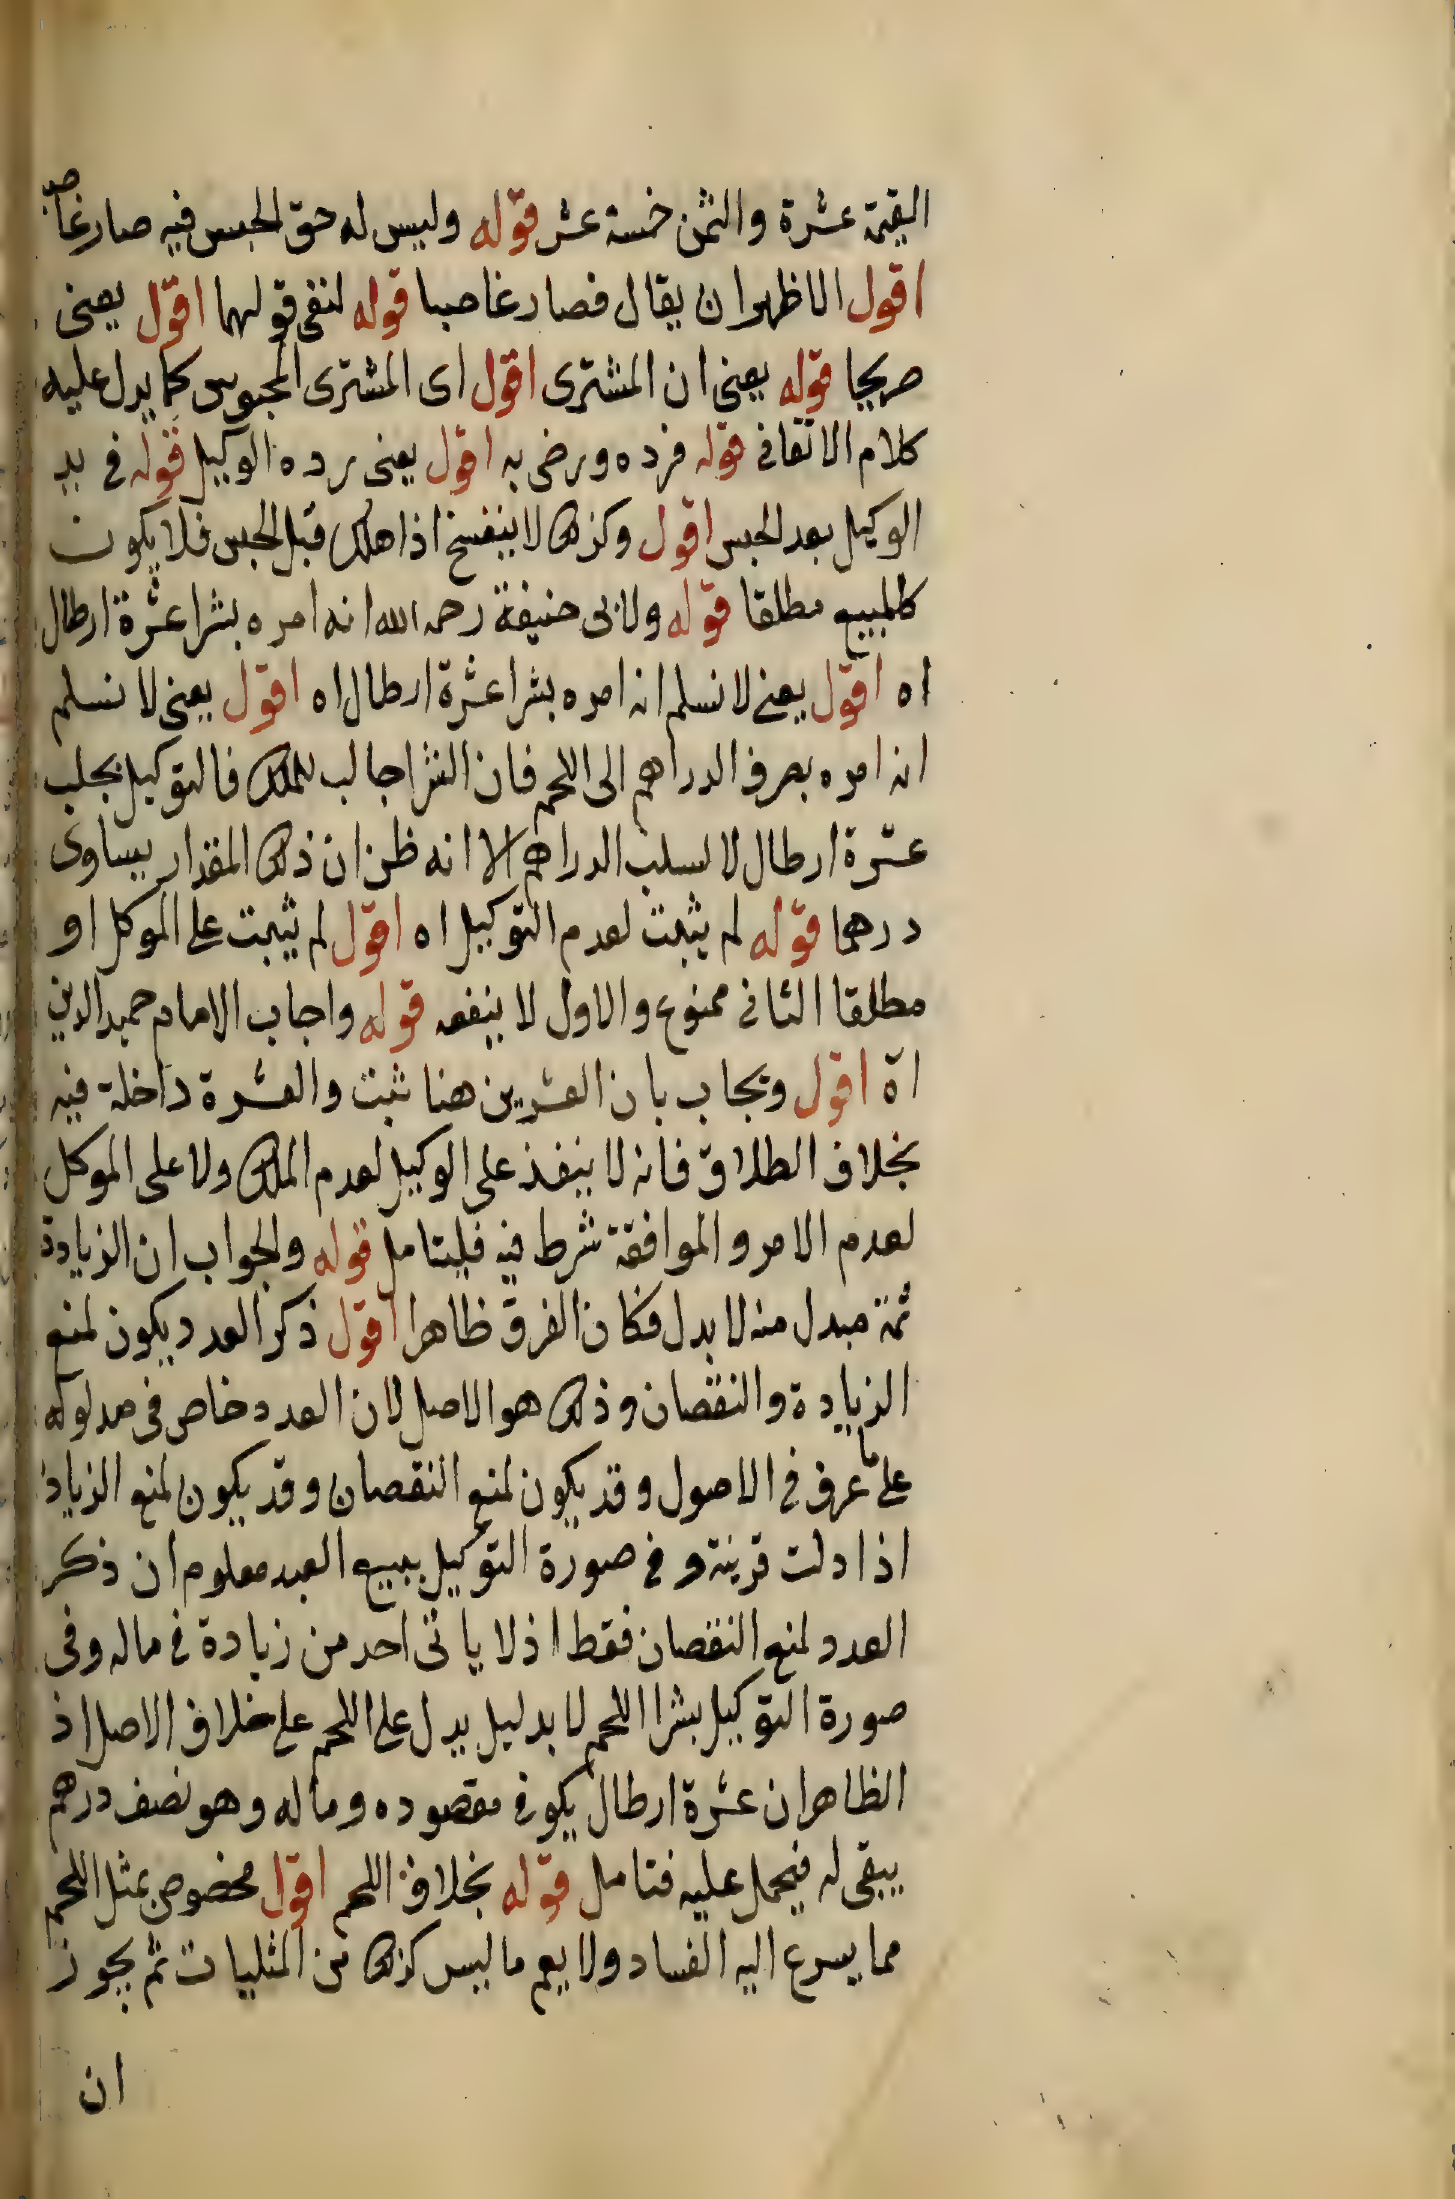 القيمة عشرة والثمن خمسة عشر قوله وليس له حق الحبس فيه صار غاصبا
اقول الاظهر ان يقال فصار غاصبا قوله لنفى قولهما اقول يعنى
صريحا قوله يعنى ان المشترى اقول اى المشترى المحبوس كما يدل عليه
كلام الاتقانى قوله فرده ورضى به اقول يعنى رده الوكيل قوله فى يد
الوكيل بعد الحبس اقول وكذلك لا ينفسخ اذا هلك قبل الحبس فلا يكون
كالمبيع مطلقا قوله ولابى حنيفة رحمه الله انه امره بشرا عشرة ارطال
اه اقول يعنى لا نسلم انه امره بشرا عشرة ارطال اه اقول يعنى لا نسلم
انه امره بصرف الدراهم الى اللحم فان الشرا جالب للملك فالتوكيل بجلب
عشرة ارطال لا لسلب الدراهم الا انه ظن ان ذلك المقدار يساوى
درهما قوله لم يثبت لعدم التوكيل اه اقول لم يثبت على الموكل او
مطلقا الثانى ممنوع والاول لا ينفعه قوله واجاب الامام حميد الدين
اه اقول ويجاب بان العشرين هنا ثبت والعشرة داخلة فيه
بخلاف الطلاق فانه لا ينفذ على الوكيل لعدم الملك ولا على الموكل
لعدم الامر والموافقة شرط فيه فليتامل قوله والجواب ان الزيادة
ثمة مبدل منه لا بدل فكان الفرق ظاهرا اقول ذكر العدد يكون لمنع
الزيادة والنقصان وذلك هو الاصل لان العدد خاص فى مدلوله
على ما عرف فى الاصول وقد يكون لمنع النقصان وقد يكون لمنع الزياد
اذا دلت قرينة و فى صورة التوكيل ببيع العبد معلوم ان ذكر
العدد لمنع النقصان فقط اذ لا يابى احد من زيادة فى ماله وفى
صورة التوكيل بشرا اللحم لا بد ليل يدل على اللحم على خلاف الاصل اذ
الظاهر ان عشرة ارطال يكون فى مقصوده وماله وهو نصف درهم
يبقى له فيحمل عليه فتامل قوله بخلاف اللحم اقول مخصوص بمثل اللحم
مما يسرع اليه الفساد ولا يعم ما ليس كذلك من المثليات ثم يجوز
ان